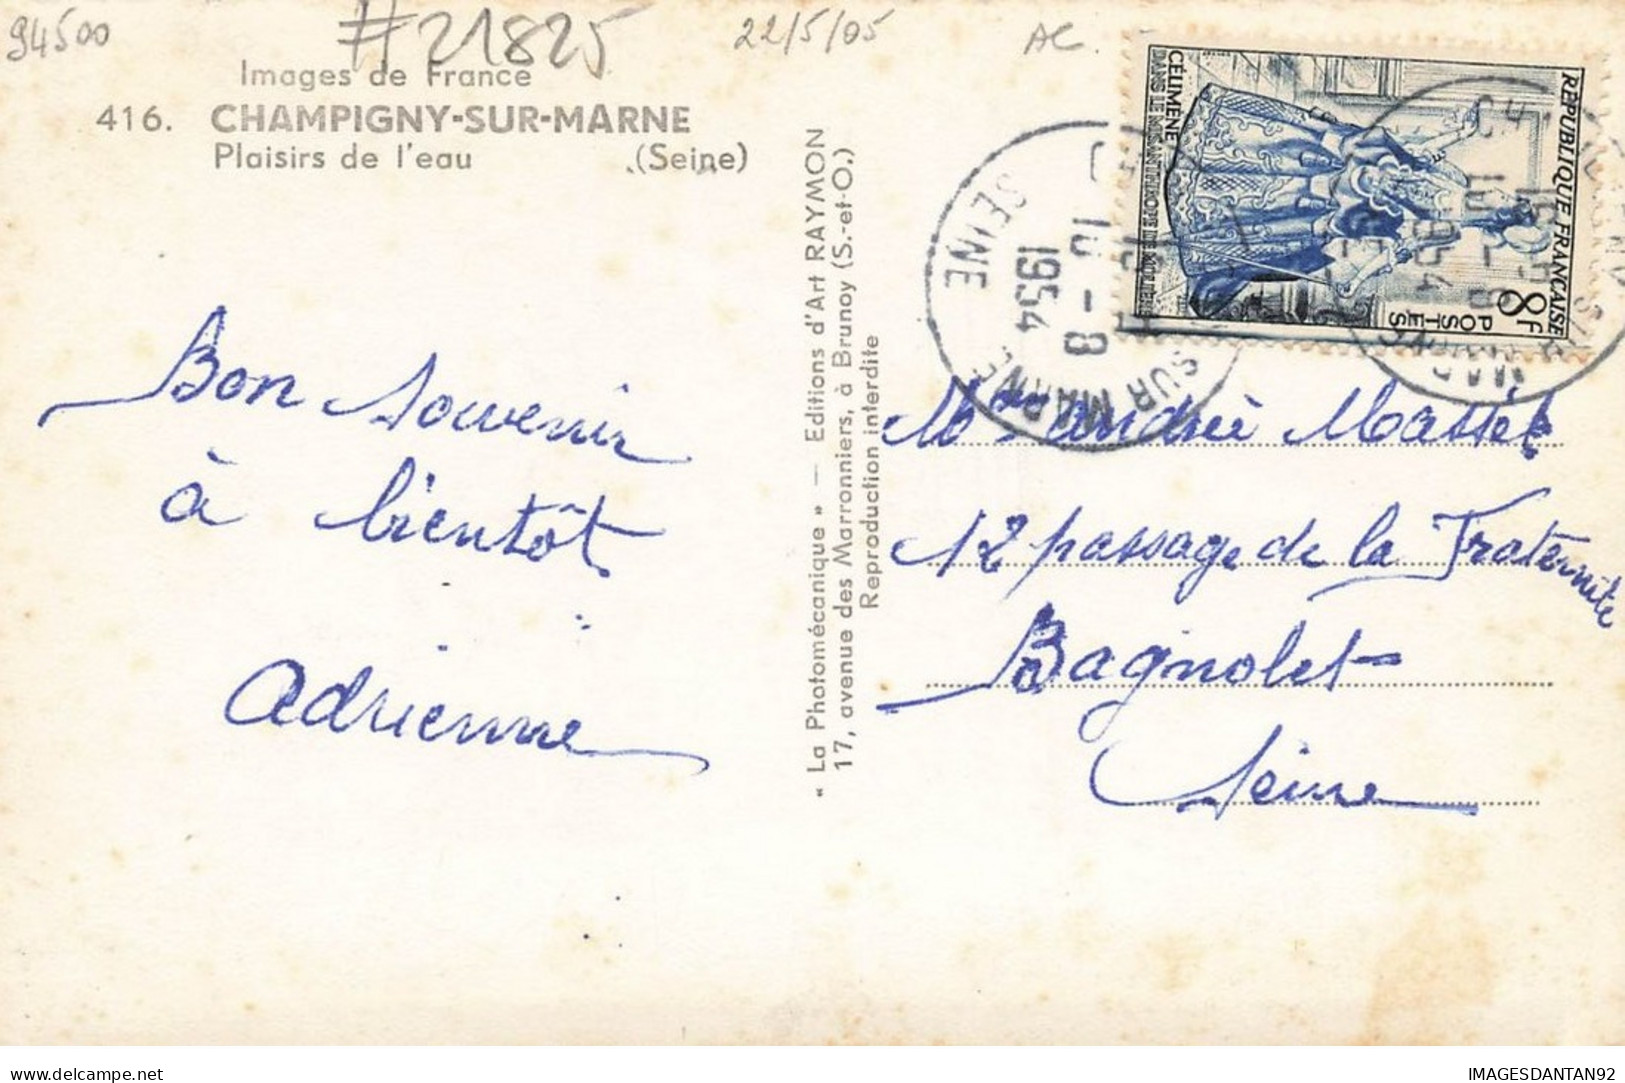 94500
#21825
22/5/05
AC.
Images de France
416. CHAMPIGNY-SUR-MARNE
Plaisirs de l'eau (Seine)
Bon souvenir
à bientôt
Adrienne
« La Photomécanique » — Editions d'Art RAYMON
17, avenue des Marronniers, à Brunoy (S.-et-O.)
Reproduction interdite
RÉPUBLIQUE FRANÇAISE
8F
POSTES
CÉLIMÈNE
DANS LE MISANTHROPE DE MOLIÈRE
SUR MARNE
SEINE
16 - 8
1954
André
12 passage de la Fraternité
Bagnolet
Seine
delcampe.net
IMAGESDANTAN92